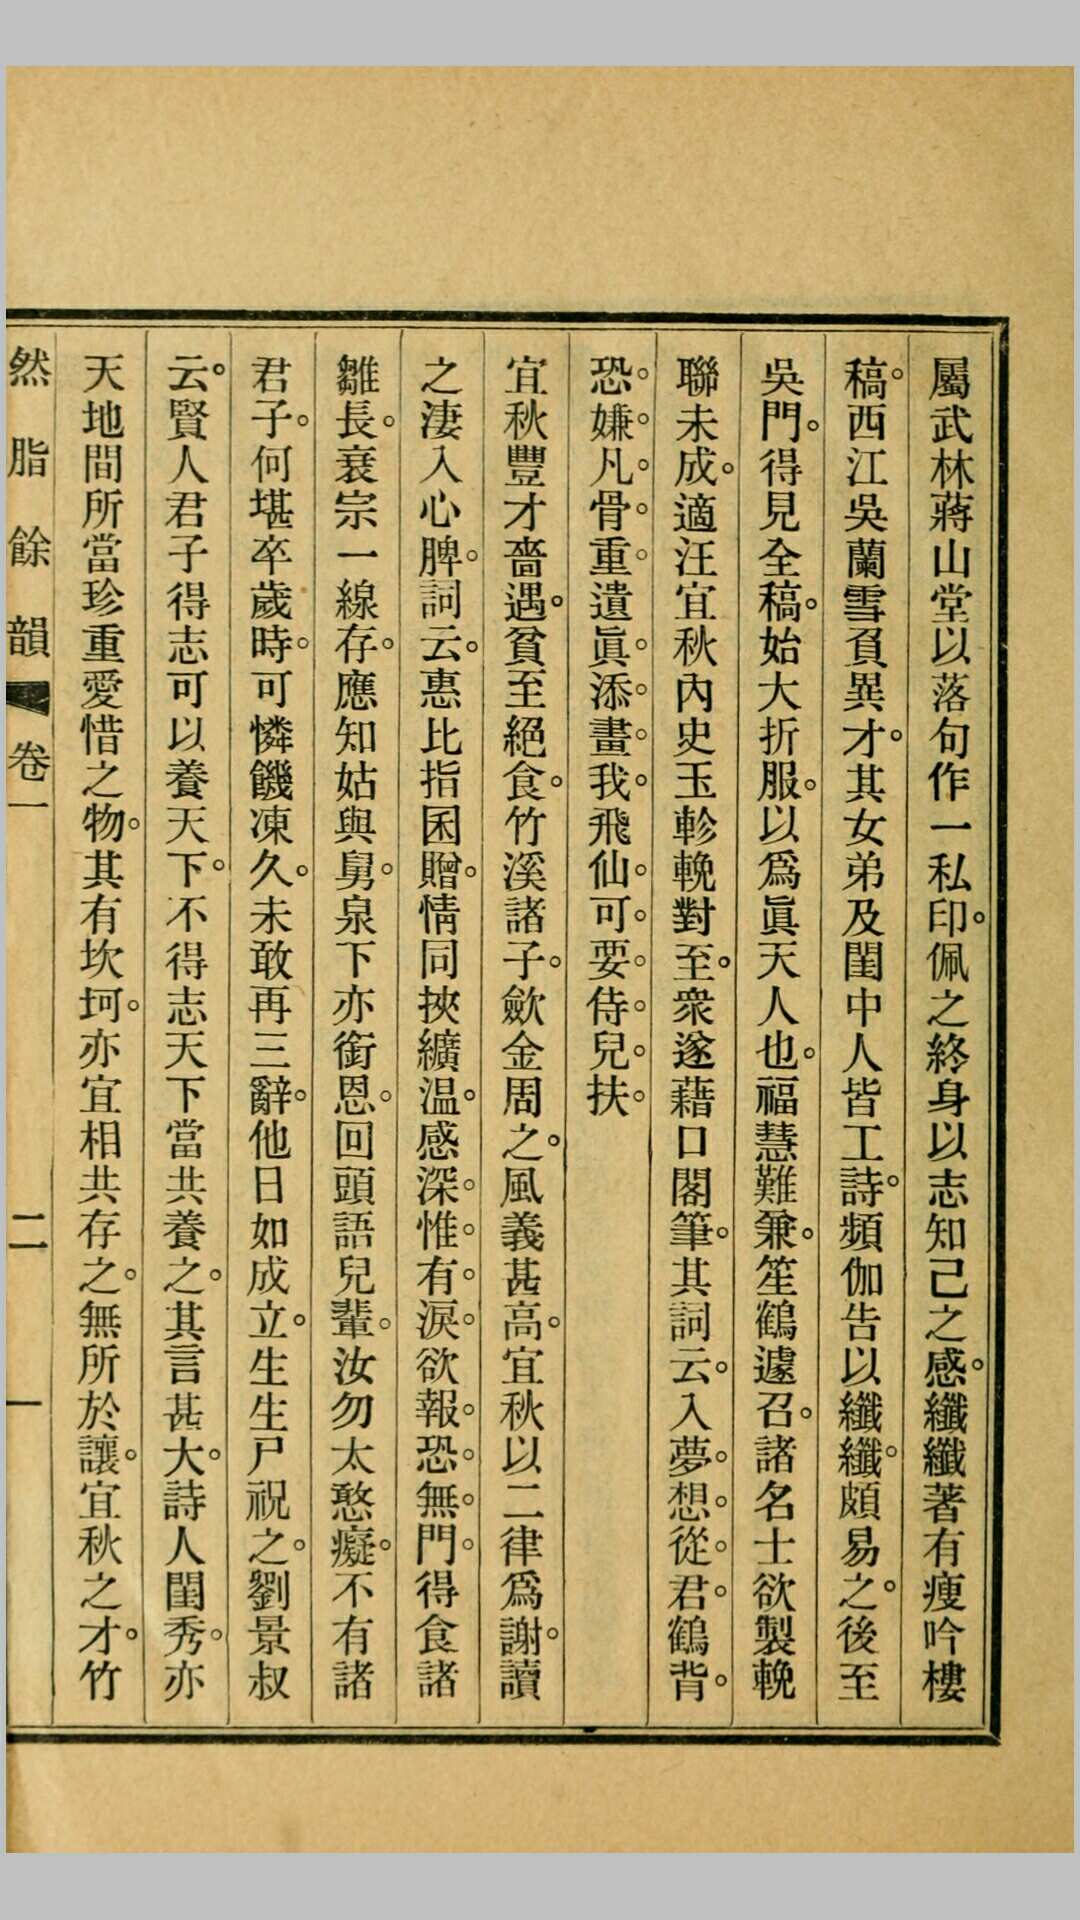 屬武林蔣山堂以落句作一私印。佩之終身以志知己之感。纖纖著有瘦吟樓
稿。西江吳蘭雪負異才。其女弟及閨中人皆工詩。頻伽告以纖纖。頗易之。後至
吳門。得見全稿。始大折服。以爲眞天人也。福慧難兼。笙鶴遽召。諸名士欲製輓
聯未成。適汪宜秋內史玉軫輓對至。衆遂藉口閣筆。其詞云。入夢。想。從。君。鶴背。
恐。嫌。凡。骨。重。遺眞。添。畫。我。飛仙。可。要。侍。兒。扶。
宜秋豐才嗇遇。貧至絕食。竹溪諸子。歛金周之。風義甚高。宜秋以二律爲謝。讀
之淒入心脾。詞云。惠比指囷贈。情同挾纊温。感深。惟。有。淚。欲報。恐。無。門。得食諸
雛長。衰宗一線存。應知姑與舅。泉下亦銜恩。回頭語兒輩。汝勿太憨癡。不有諸
君子。何堪卒歲時。可憐饑凍久。未敢再三辭。他日如成立。生生尸祝之。劉景叔
云。賢人君子得志可以養天下。不得志天下當共養之。其言甚大。詩人閨秀。亦
天地間所當珍重愛惜之物。其有坎坷。亦宜相共存之。無所於讓。宜秋之才。竹
然脂餘韻 卷一 二 一